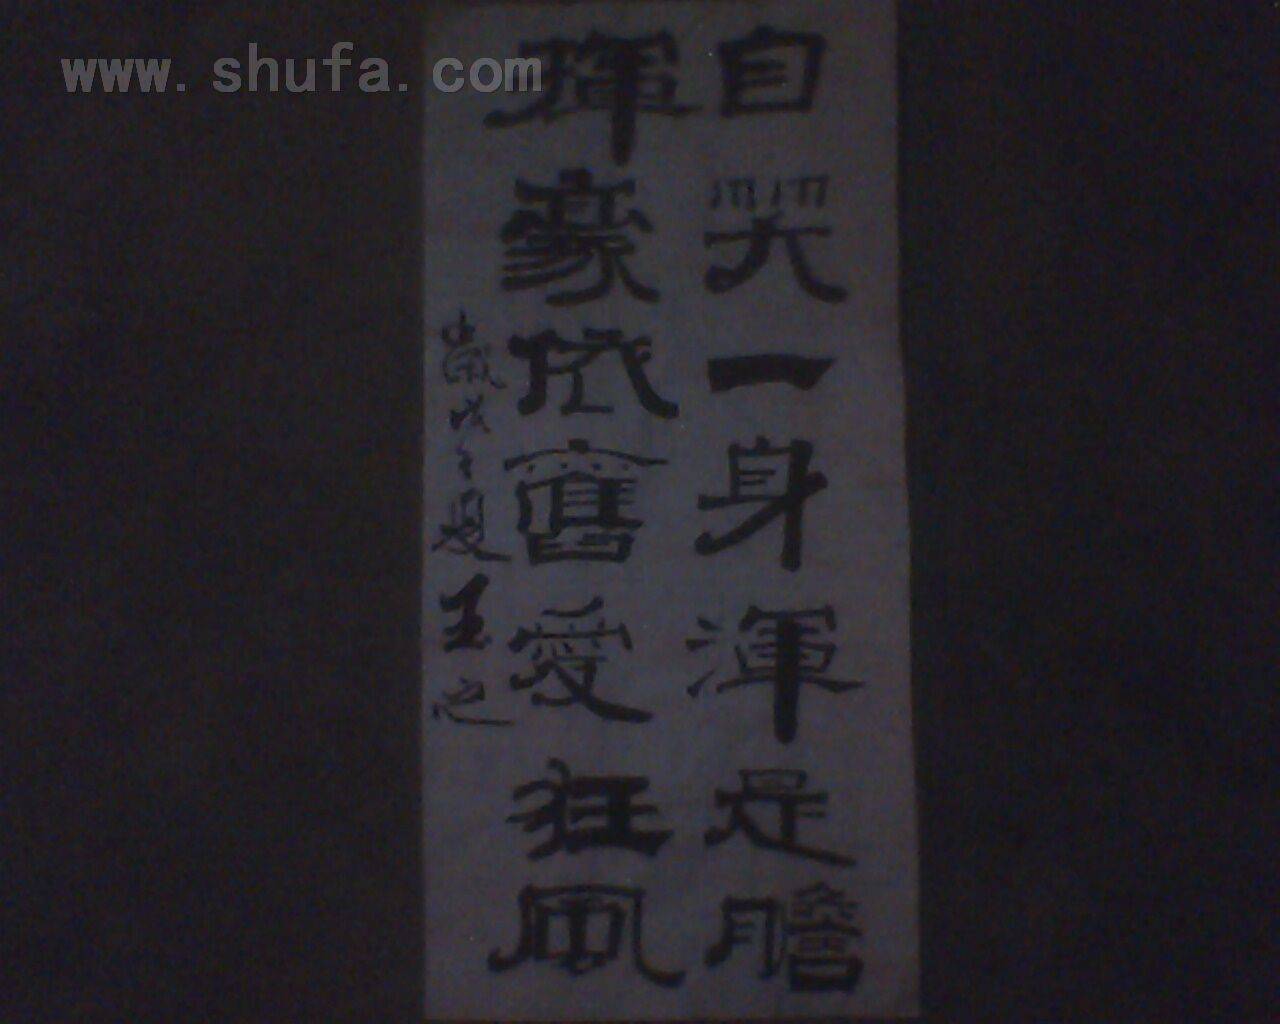 www.shufa.com
自笑一身渾是膽
揮豪依舊愛狂風
歲戊子夏玉之